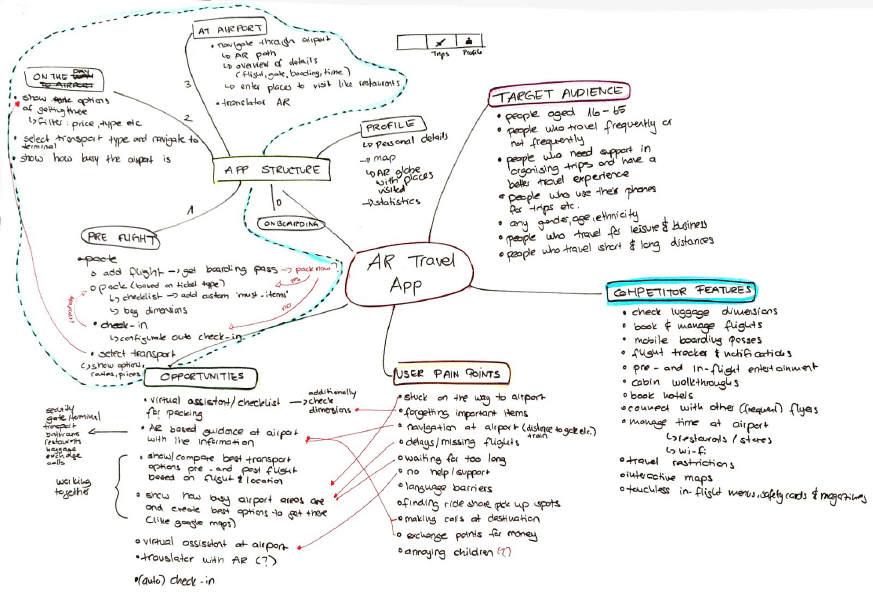 AT AIRPORT
• navigate through airport
↳ AR path
↳ overview of details
(flight, gate, boading, time)
↳ enter places to visit like restaurants
• translator AR
3
Trips Profile
ON THE DAY
TO AIRPORT
• show options
of getting there
↳ filter: price, type etc
• select transport type and navigate to
terminal
• show how busy the airport is
2
PROFILE
↳ personal details
→ map
↳ AR globe
with places
visited
→ statistics
APP STRUCTURE
0
ONBOARDING
1
PRE FLIGHT
• pack
○ add flight → get boarding pass → pack now?
yes
○ pack (based on ticket type)
↳ checklist → add custom 'must-items'
↳ bag dimensions
no
• check-in
↳ configurate auto check-in
• select transport
↳ show options,
routes, prices
AR Travel
App
TARGET AUDIENCE
• people aged 16-65
• people who travel frequently or
not frequently
• people who need support in
organising trips and have a
better travel experience
• people who use their phones
for trips etc.
• any gender, age, ethnicity
• people who travel for leisure & business
• people who travel short & long distances
COMPETITOR FEATURES
• check luggage dimensions
• book & manage flights
• mobile boarding passes
• flight tracker & notifications
• pre- and in-flight entertainment
• cabin walkthroughs
• book hotels
• connect with other (frequent) flyers
• manage time at airport
↳ restaurants / stores
↳ wi-fi
• travel restrictions
• interactive maps
• touchless in-flight menus, safety cards & magazines
OPPORTUNITIES
• virtual assistant/checklist
for packing
→ additionally
check
dimensions
• AR based guidance at airport
with live information
security
gate/terminal
transport
entrances
restaurants
baggage
exchange
calls
• show/compare best transport
options pre- and post flight
based on flight & location
• show how busy airport areas are
and create best options to get there
(like google maps)
working
together
• virtual assistent at airport
• translater with AR (?)
• (auto) check-in
USER PAIN POINTS
• stuck on the way to airport
• forgetting important items
• navigation at airport (distance to gate etc.)
• delays/missing flights
train
• waiting for too long
• no help/support
• language barriers
• finding ride share pick up spots
• making calls at destination
• exchange points for money
• annoying children (?)